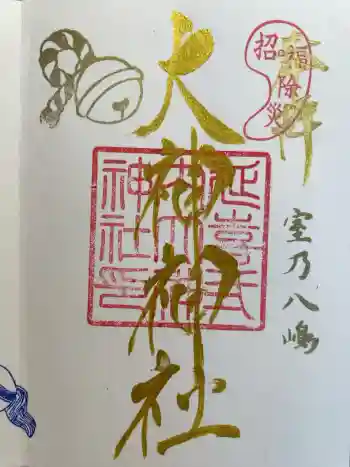 奉拝
招福除災
室乃八嶋
大神神社
延喜式
内大神
神社印